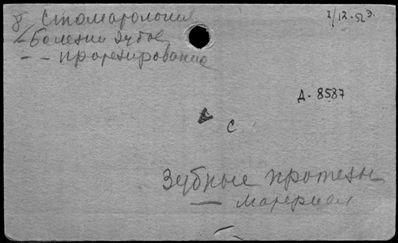 γ Стоматология
2/12-52 г.
Болезни зубов
— — протезирование
Д-8587
С
Зубные протезы
— материал